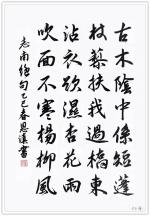 古木陰中係短蓬
杖藜扶我過橋東
沾衣欲濕杏花雨
吹面不寒楊柳風
志南絕句乙巳春恩溪書